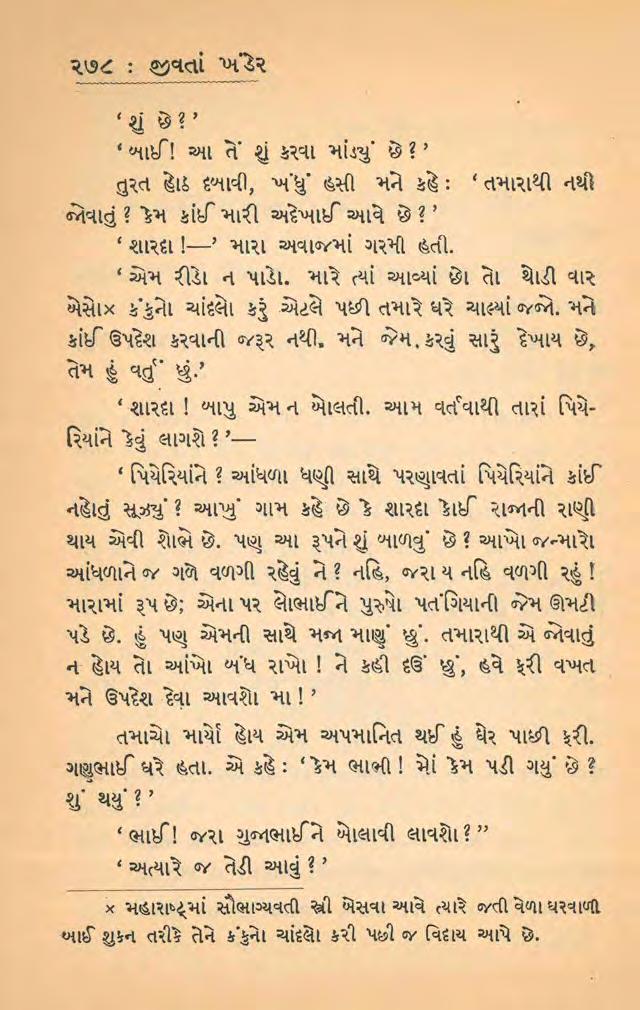 ૨૭૮ : જીવતાં ખંડેર
‘શું છે?’
‘બાઈ! આ તેં શું કરવા માંડ્યું છે?’
તુરત હોઠ દબાવી, ખંધું હસી મને કહે: ‘તમારાથી નથી
જોવાતું? કેમ કાંઈ મારી અદેખાઈ આવે છે?’
‘શારદા!—’ મારા અવાજમાં ગરમી હતી.
‘એમ રીડો ન પાડો. મારે ત્યાં આવ્યાં છો તો થોડી વાર
બેસો× કંકુનો ચાંદલો કરું એટલે પછી તમારે ઘરે ચાલ્યાં જજો. મને
કાંઈ ઉપદેશ કરવાની જરૂર નથી. મને જેમ કરવું સારું દેખાય છે,
તેમ હું વર્તું છું.’
‘શારદા! બાપુ એમ ન બોલતી. આમ વર્તવાથી તારાં પિયે-
રિયાંને કેવું લાગશે?’—
‘પિયેરિયાંને? આંધળા ધણી સાથે પરણાવતાં પિયેરિયાંને કાંઈ
નહોતું સૂઝ્યું? આખું ગામ કહે છે કે શારદા કોઈ રાજાની રાણી
થાય એવી શોભે છે. પણ આ રૂપને શું બાળવું છે? આખો જન્મારો
આંધળાને જ ગળે વળગી રહેવું ને? નહિ, જરા ય નહિ વળગી રહું!
મારામાં રૂપ છે; એના પર લોભાઈને પુરુષો પતંગિયાની જેમ ઊમટી
પડે છે. હું પણ એમની સાથે મજા માણું છું. તમારાથી એ જોવાતું
ન હોય તો આંખો બંધ રાખો! ને કહી દઉં છું, હવે ફરી વખત
મને ઉપદેશ દેવા આવશો મા!’
તમાચો માર્યો હોય એમ અપમાનિત થઈ હું ઘેર પાછી ફરી.
ગણુભાઈ ઘરે હતા. એ કહે: ‘કેમ ભાભી! મોં કેમ પડી ગયું છે?
શું થયું?’
‘ભાઈ! જરા ગુજાભાઈને બોલાવી લાવશો?”
‘અત્યારે જ તેડી આવું?’
× મહારાષ્ટ્રમાં સૌભાગ્યવતી સ્ત્રી બેસવા આવે ત્યારે જતી વેળા ઘરવાળી
બાઈ શુકન તરીકે તેને કંકુનો ચાંદલો કરી પછી જ વિદાય આપે છે.